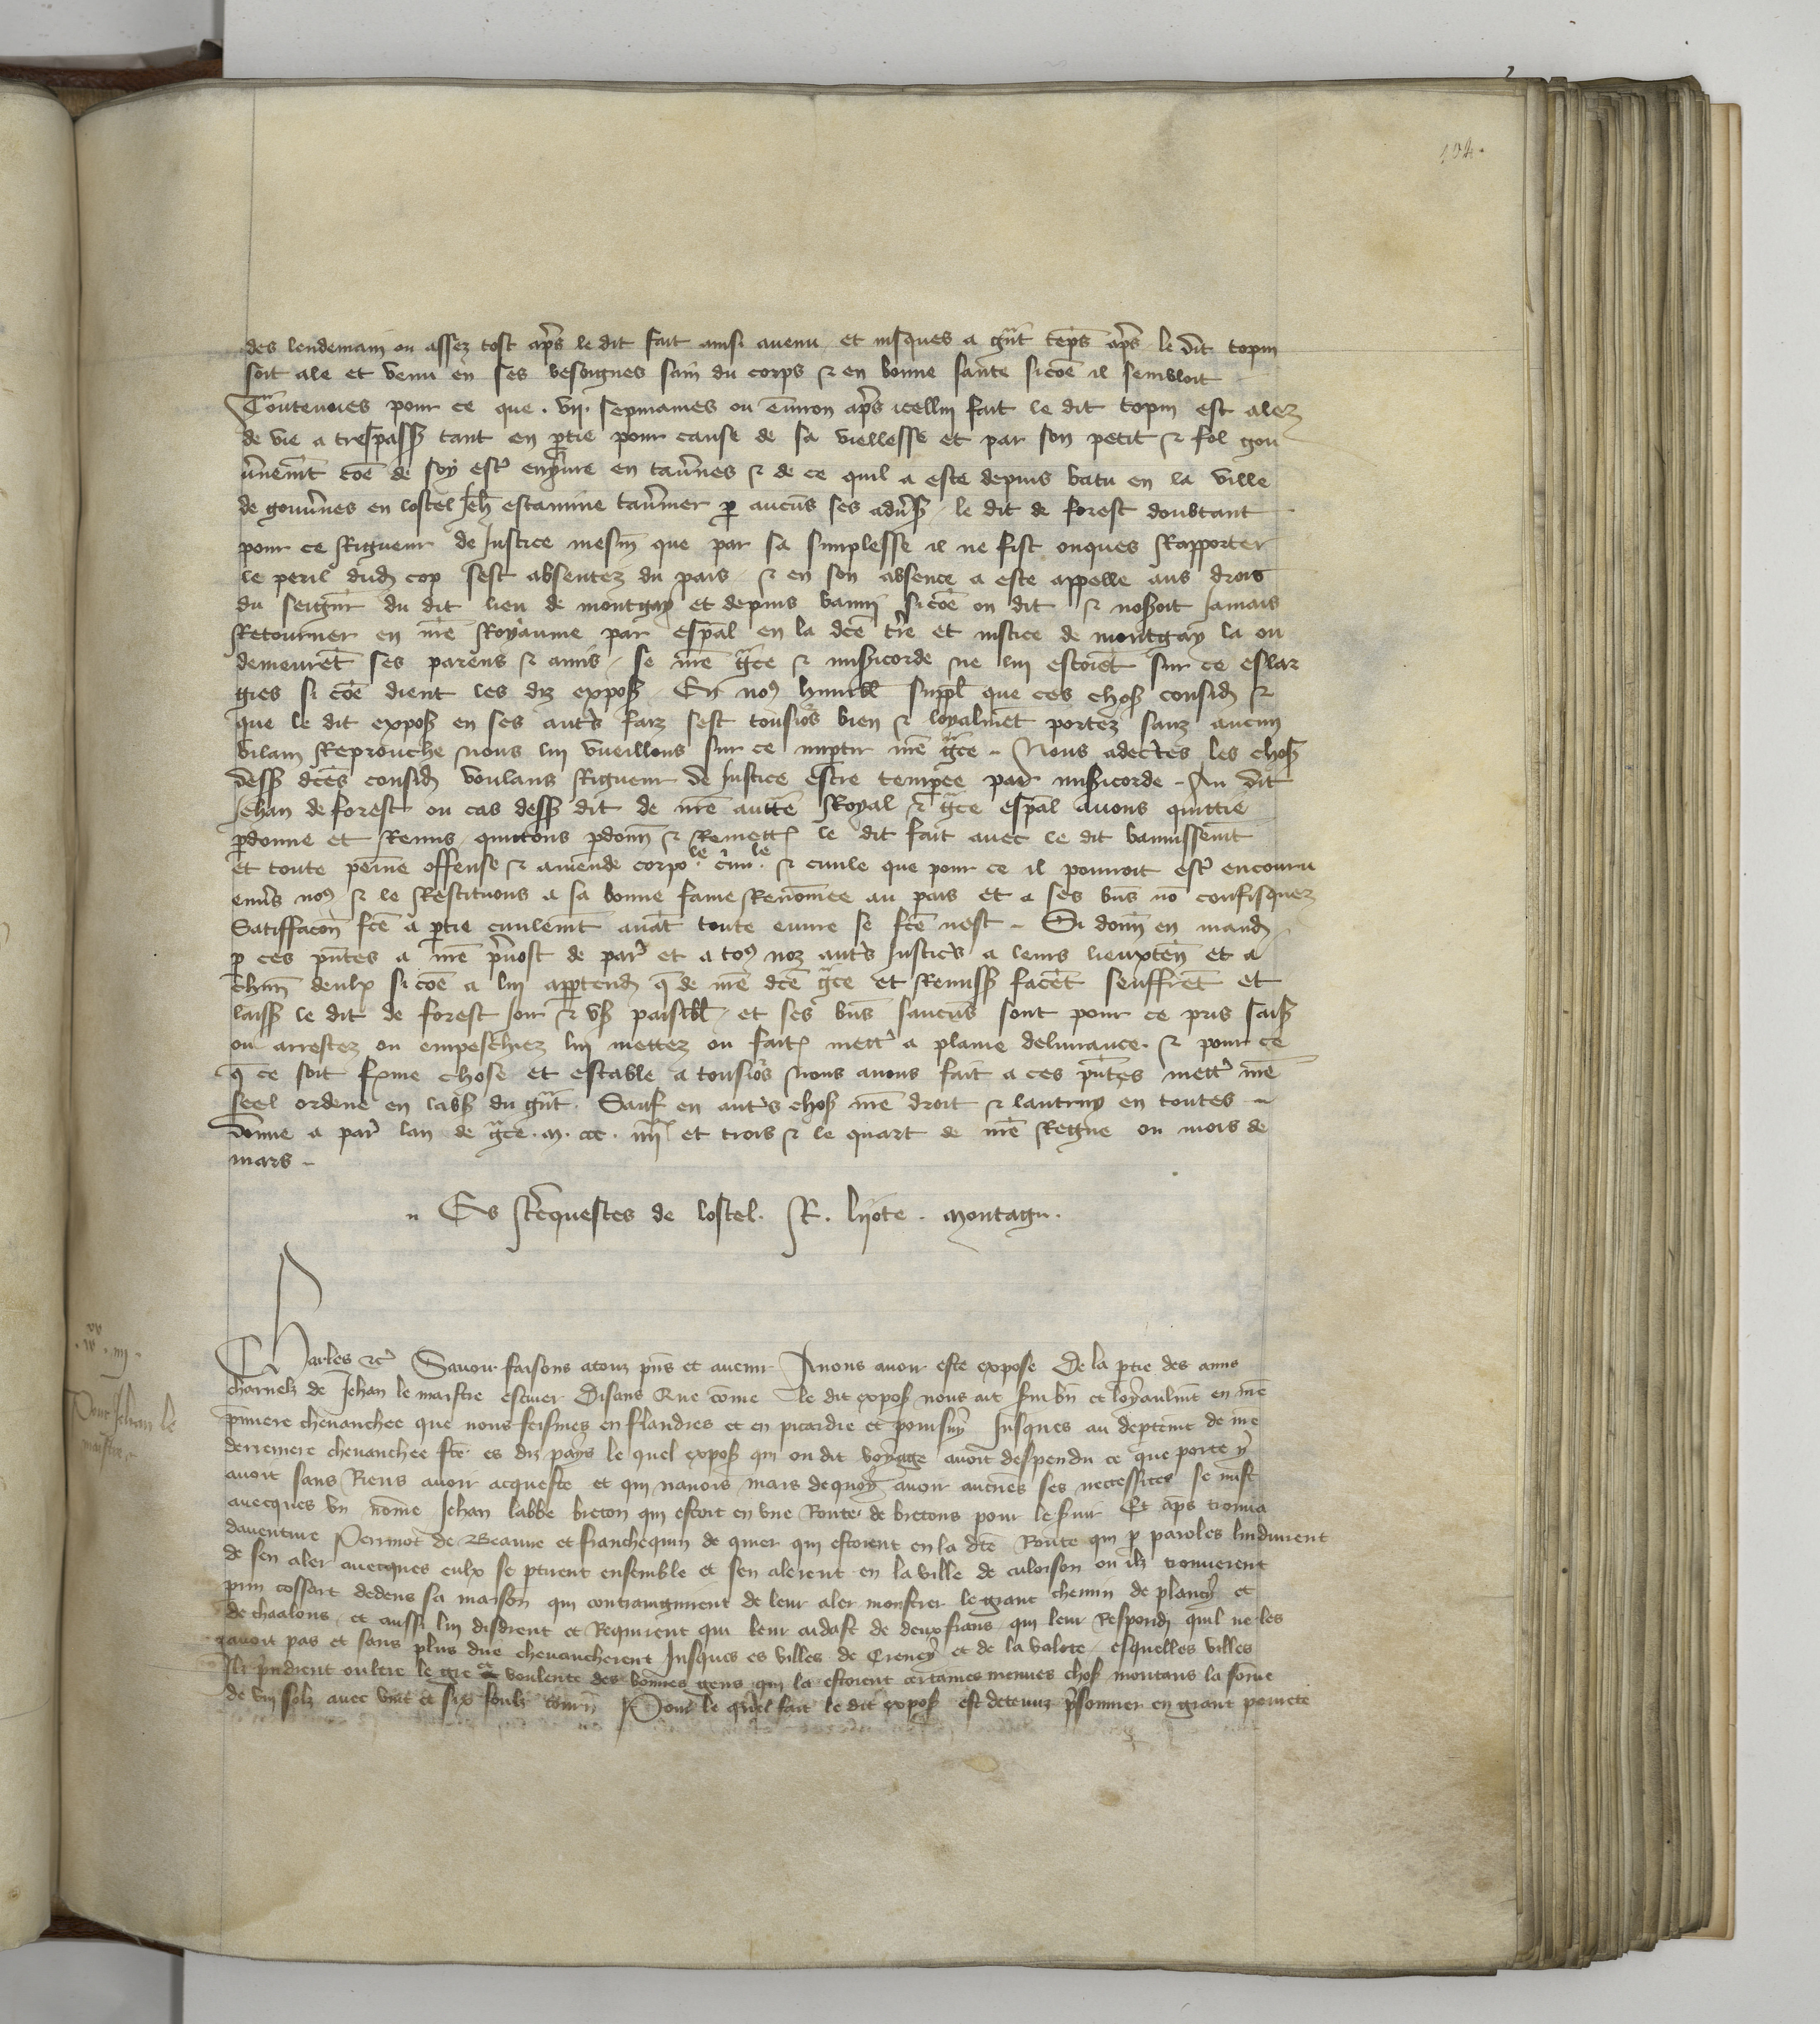 104.
des lendemain ou assez tost apres le dit fait ainsi avenu et jusques a gñt temps apres le dit topin
soit ale et venu en ses besoignes sain du corps & en bonne sante si cõe il sembloit
Toutevoies pour ce que .vij. sepmaines ou environ apres icellui fait le dit topin est alez
de vie a trespass tant en ptie pour cause de sa viellesse et par son petit & fol gou
vnemẽt cõe de soy estre enyvre en tavernes & de ce quil a este depuis batu en la ville
de gouvernes en lostel Jeh estamine tavernier p aucũs ses advers le dit de forest doubtant
pour ce Rigueur de Justice mesm que par sa simplesse il ne fist onques Rapporter
le peril dud cop sest absentez du pais & en son absence a este appelle aus drois
du seigneur du dit lieu de montgay et depuis banni si cõe on dit & noseroit Jamais
Retourner en nr̃e Royaume par espãl en la dcẽ tr̃e et justice de montgay la ou
demeurẽt ses parens & amis se nr̃e gr̃ce & misericorde ne lui estoiẽt sur ce eslar
gies si cõe dient les diz expos En nos humbl suppl que ces chos consid &
que le dit expos en ses autres faiz sest tousjors bien & loyalmẽt portez sanz aucun
vilain Reprouche nous lui vueillons sur ce impartir nr̃e gr̃ce Nous adecertes les chos
dess dcẽs consid voulans Rigueur de Justice estre temperee par misericorde Au dit
Jehan de forest ou cas dess dit de nr̃e auttẽ Royal & gr̃ce espãl avons quittie
pdonne et Remis quittons pdonn & Remett le dit fait avec le dit bannissemt
et toute peine offense & amende corpo.le crim.le & civile que pour ce il pourroit estre encouru
envers nos & le Restituons a sa bonne fame Renõmee au pais et a ses biẽs nõ confisquez
Satiffacõn fcẽ a ptie civilemt avãt toute euvre se fcẽ nest Si donn en mand
p ces pñtes a nr̃e prevost de par et a tos noz autres Justiciers a leurs lieuxten et a
chũn deulx si cõe a lui appartend q de nr̃e dcẽ gr̃ce et Remiss facẽt seuffrẽt et
laiss le dit de forest joir & us paisibl et ses biẽs saucũs sont pour ce pris sais
ou arrestez ou empeschiez lui mettez ou fait mettre a plaine delivrance & pour ce
q ce soit ferme chose et estable a tousjors Nous avons fait a ces pñtes mettre nr̃e
seel ordene en labs du gñt Sauf en autres chos nr̃e droit & lautruy en toutes
Donne a par lan de gr̃ce .m. ccc. iiijxx et trois & le quart de nr̃e Regne ou mois de
mars
Es Requestes de lostel. R. lijote. Montagu.
Charles &c Savoir faisons a touz pñs et avenir A nous avoir este expose De la ptie des amis
charnelz de Jehan le maistre escuier Disans Que cõme le dit expos nous ait servi biẽ et loyaulmt en nr̃e
premiere chevauchee que nous feismes en flandres et en picardie et poursuy Jusques au deptemt de nr̃e
derreniere chevauchee fcẽ es diz pays le quel expos qui ou dit voyage avoit despendu ce que porte y
avoit sans Riens avoir acqueste et qui navoit mais de quoy avoir aucunes ses neccessites se mist
avecques un nõme Jehan labbe breton qui estoit en une Route de bretons pour le servir Et apres trouva
daventure Perrinot de Beaune et franchequin de quier qui estoient en la dcẽ Route qui p paroles lindurent
de sen aler avecques eulx se ptirent ensemble et sen alerent en la ville de culoison ou ilz trouverent
prin cossart dedens sa maison qui contraignirent de leur aler monstrer le grant chemin de plancy et
de chaalons et aussi lui disdrent et Requirent qui leur aidast de deux frans qui leur Respond quil ne les
avoit pas et sans plus dire chevaucherent Jusques es villes de Crency et de la valote esquelles villes
Ilz prindrent oultre le gre et voulente des bonnes gens qui la estoient certaines menues chos montans la sõme
de viij solz avec vint et six soulz tourñ Pour le quel fait le dit expos est detenuz prisonnier en grant povrete
Pour Jehan le
maistre